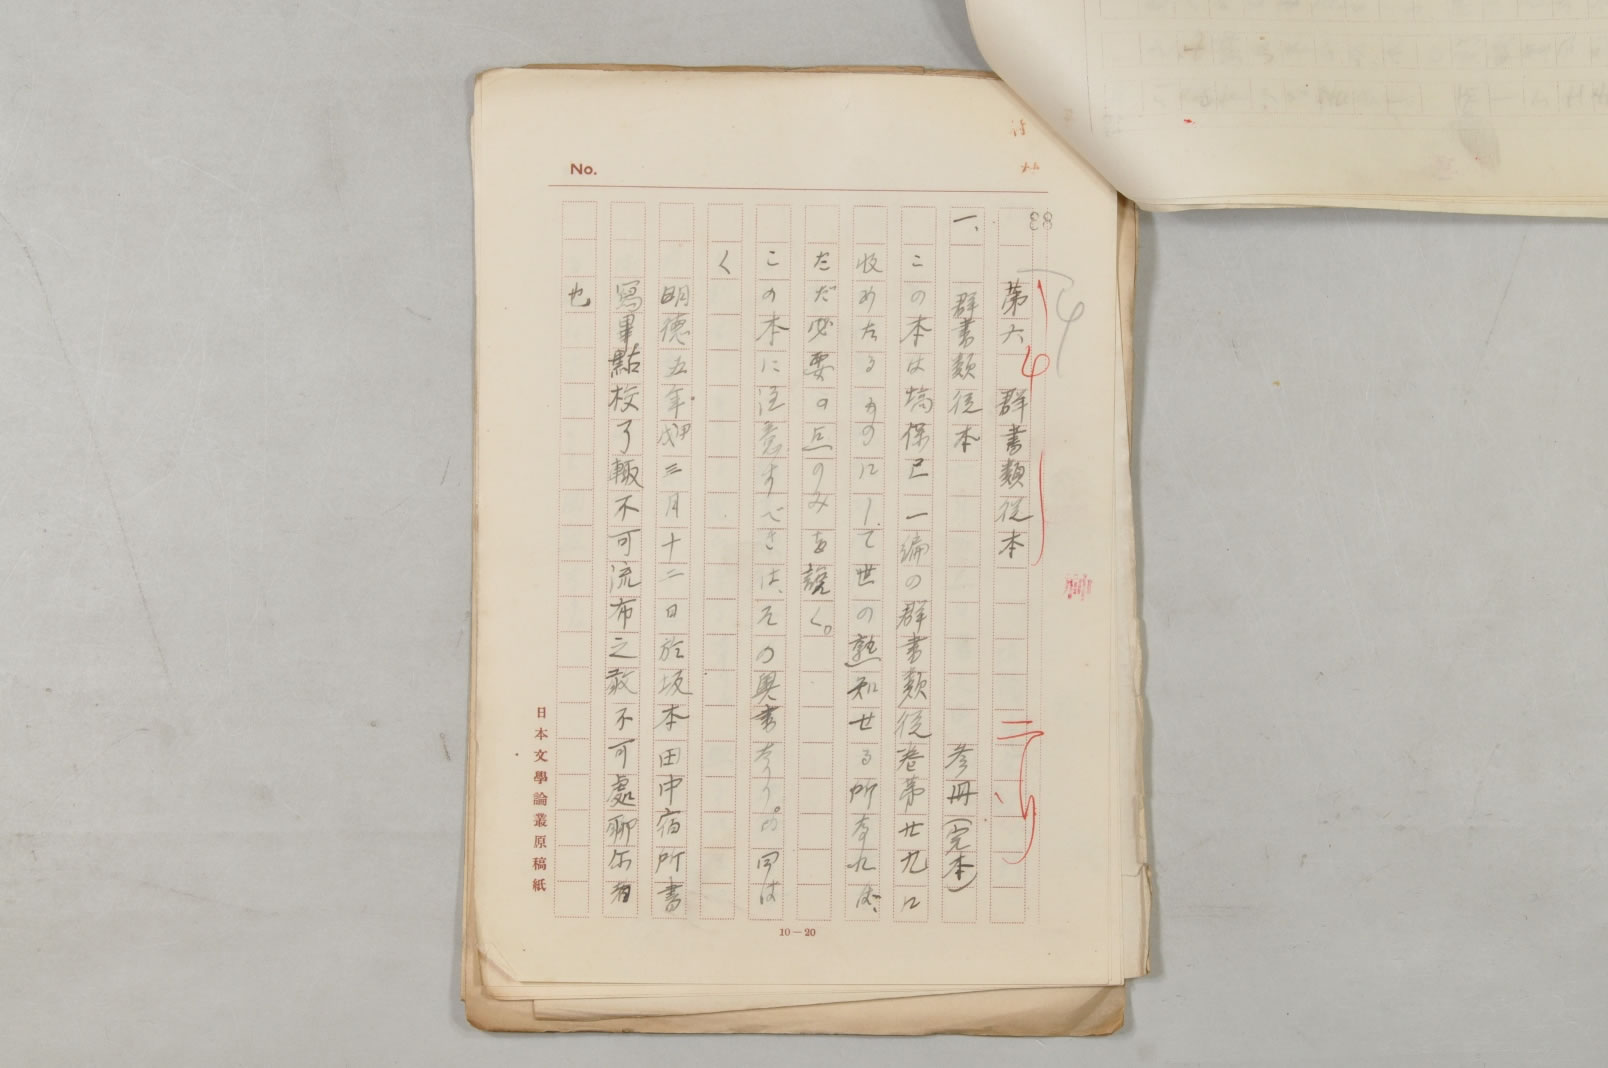 No.
83
第六　群書類従本
一、群書類従本　参冊（完本）
この本は塙保己一編の群書類従巻第廿九に
収めたるものにして世の熟知せる所なれば、
ただ必要の点のみを説く。
この本に注意すべきは、その奥書なり。の 曰は
く
明徳五年甲戌三月十二日於坂本田中宿所書
寫畢點校了輙不可流布之 不可處聊尓
也
日本文學論叢原稿紙
10—20